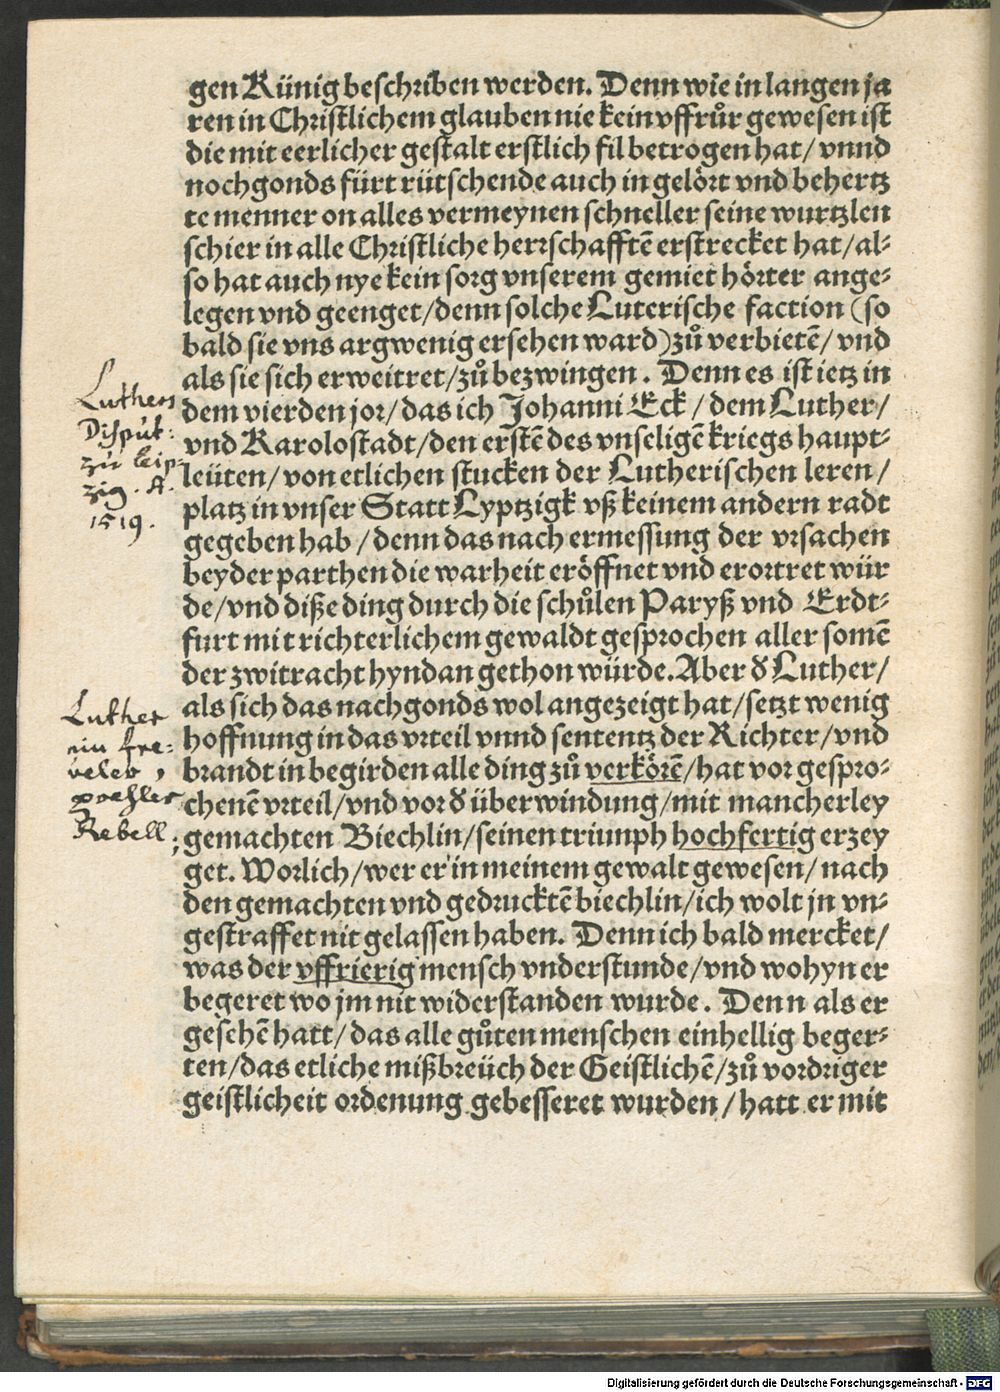 gen Künig beschriben werden. Denn wie in langen ja
ren in Christlichem glauben nie kein vffrůr gewesen ist
die mit eerlicher gestalt erstlich fil betrogen hat/ vnnd
nochgonds fürt rütschende auch in gelört vnd behertz
te menner on alles vermeynen schneller seine wurtzlen
schier in alle Christliche herrschafftē erstrecket hat/al⸗
so hat auch nye kein sorg vnserem gemiet hörter ange⸗
legen vnd geenget/denn solche Luterische faction (so
bald sie vns argwenig ersehen ward)zů verbietē/ vnd
als sie sich erweitret/zů bezwingen. Denn es ist ietz in
dem vierden jor/das ich Johanni Eck/ dem Luther/
vnd Karolostadt/den erstē des vnseligē kriegs haupt⸗
leüten/von etlichen stucken der Lutherischen leren/
platz in vnser Statt Lyptzigk vß keinem andern radt
gegeben hab/denn das nach ermessung der vrsachen
beyder parthen die warheit eröffnet vnd erortret wür
de/vnd diße ding durch die schůlen Paryß vnd Erdt⸗
furt mit richterlichem gewaldt gesprochen aller somē
der zwitracht hyndan gethon würde. Aber d̓ Luther/
als sich das nachgonds wol angezeigt hat/setzt wenig
hoffnung in das vrteil vnnd sententz der Richter/vnd
brandt in begirden alle ding zů verkörē/hat vor gespro⸗
chenē vrteil/vnd vor d̓ überwindung/mit mancherley
gemachten Biechlin/seinen triumph hochfertig erzey
get. Worlich/wer er in meinem gewalt gewesen/nach
den gemachten vnd gedrucktē biechlin/ich wolt jn vn⸗
gestraffet nit gelassen haben. Denn ich bald mercket/
was der vffrierig mensch vnderstunde/vnd wohyn er
begeret wo jm nit widerstanden wurde. Denn als er
gesehē hatt/das alle gůten menschen einhellig beger⸗
ten/das etliche mißbreüch der Geistlichē/zů vordriger
geistlicheit ordenung gebesseret wurden/hatt er mit
Luthers
Disput:
zu Leip⸗
zig. A.
1519.
Luther
ein fre⸗
veler,
Rebell;
Digitalisierung gefördert durch die Deutsche Forschungsgemeinschaft - DFG